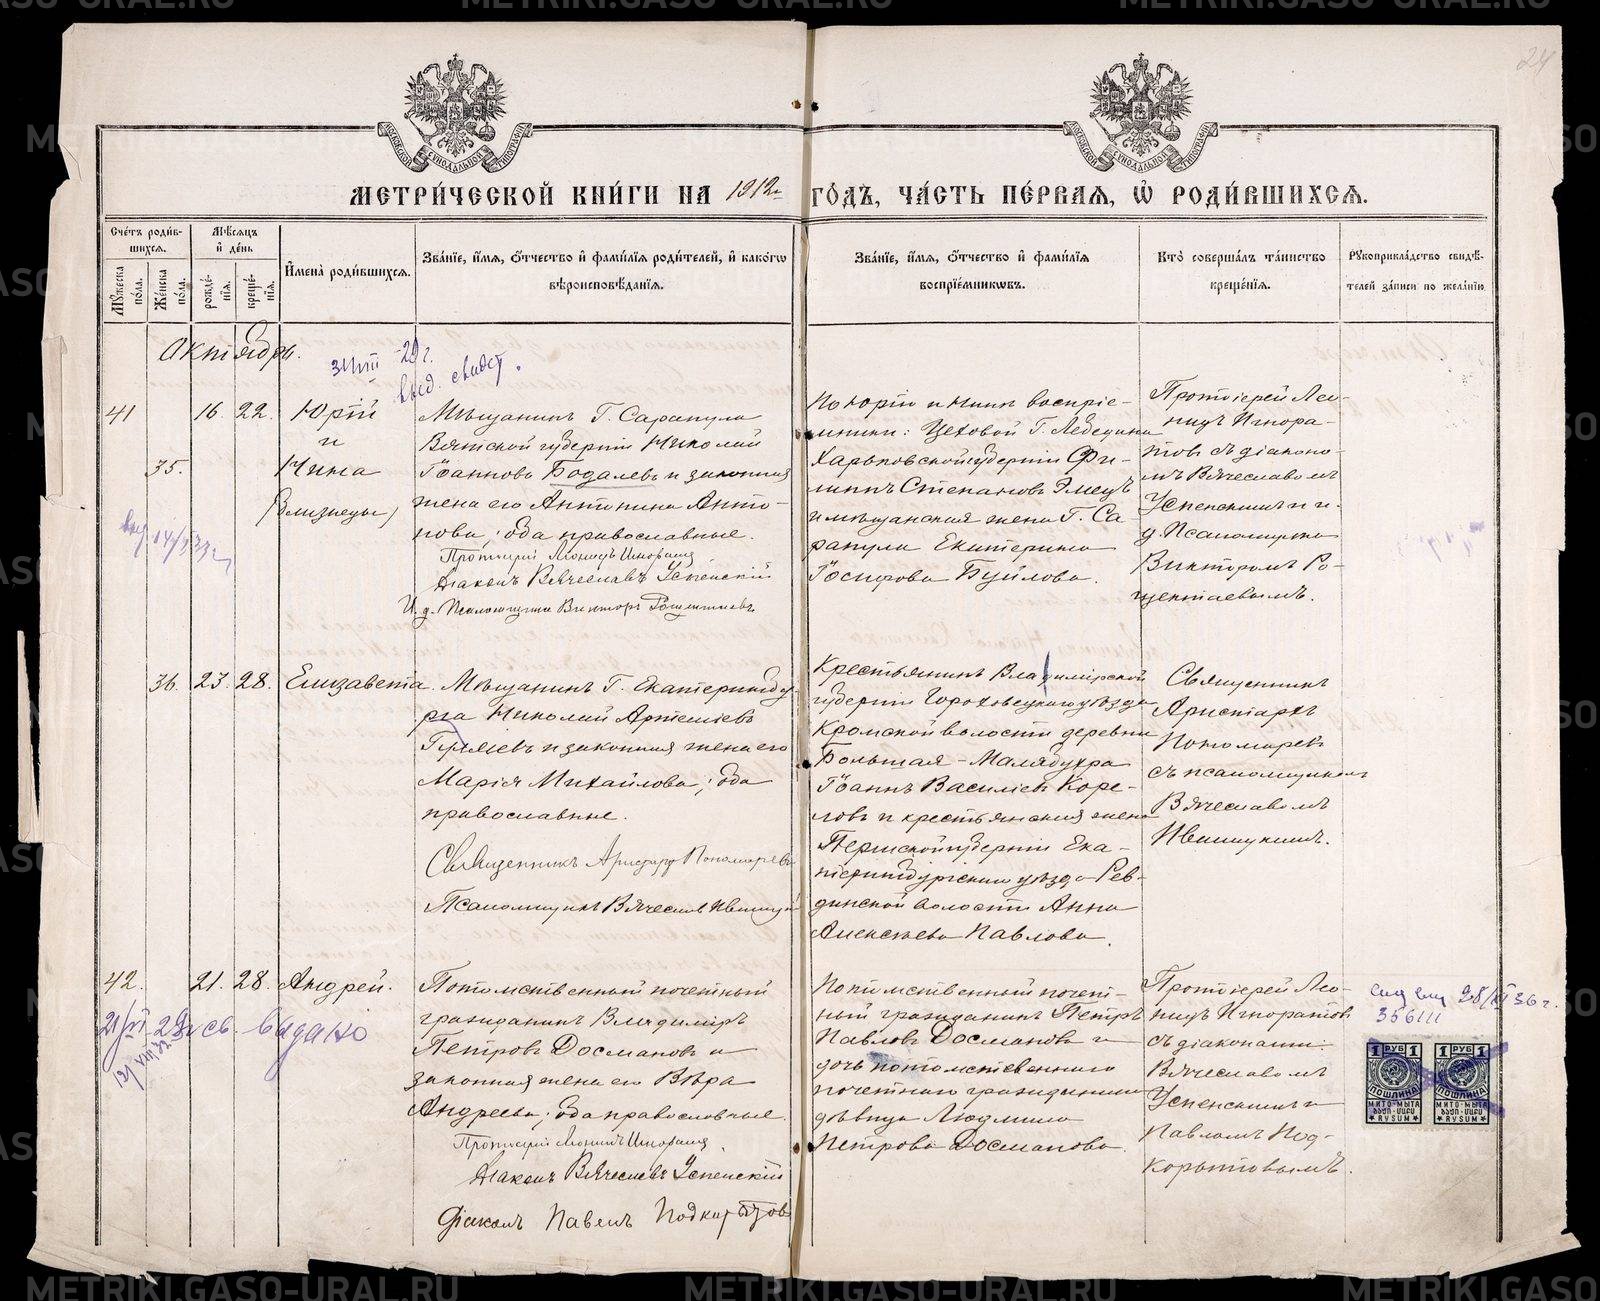 24
МЕТРИ́ЧЕСКОЙ КНИ́ГИ НА 1912 г. ГО́ДЪ, ЧА́СТЬ ПЕ́РВАЯ, Ѡ҆ РОДИ́ВШИХСѦ.
Сче́тъ роди́в-
шихсѧ.
Мѣ́сѧцъ
и҆ де́нь
Мꙋ́жеска по́ла.
Же́нска по́ла.
рожде́-
нїѧ.
креще́-
нїѧ.
И҆мена̀ роди́вшихсѧ.
Зва́нїе, и҆́мѧ, ѻ҆́тчество и҆ фами́лїѧ роди́телей, и҆ како́гѡ
вѣроисповѣ́данїѧ.
Зва́нїе, и҆́мѧ, ѻ҆́тчество и҆ фами́лїѧ
воспрїе́мникѡвъ.
Кто̀ соверша́лъ та́инство
креще́нїѧ.
Рꙋкоприкла́дство свидѣ́-
телей за́писи по жела́нїю
Октябрь.
выд. свидет.
41
35.
16. 22.
Юрій
и
Нина
(близнецы)
Мѣщанинъ Г. Сарапула
Вятской губерніи Николай
Іоанновъ Бодалевъ и законная
жена его Антонина Анто-
нова, оба православные.
Протоіерей Леонидъ Игноратов
Діаконъ Вячеславъ Успенскій
И. д. Псаломщика Викторъ Рощектаевъ
По Юрію и Нинѣ воспріе-
мники: Цеховой Г. Лебедина
Харьковской губерніи Фи-
липпъ Степановъ Эмецъ
и мѣщанская жена Г. Са-
рапула Екатерина
Іосифова Буйлова.
Протоіерей Лео-
нидъ Игнора-
товъ съ діаконо-
мъ Вячеславомъ
Успенскимъ и и.
д. Псаломщика
Викторомъ Ро-
щектаевымъ.
36. 23. 28. Елизавета.
Мѣщанинъ Г. Екатеринбу-
рга Николай Артеміевъ
Гуляевъ и законная жена его
Марія Михайлова; оба
православные.
Священникъ Аристархъ Пономаревъ
Псаломщикъ Вячеславъ Ивашук
Крестьянинъ Владимірской
губерніи Гороховецкаго уѣзда
Кромской волости деревни
Большая-Малядухра
Іоаннъ Василіевъ Коре-
ловъ и крестьянская жена
Пермской губерніи Ека-
теринбургскаго уѣзда Рев-
динской волости Анна
Алексѣева Павлова.
Священникъ
Аристархъ
Пономаревъ
съ псаломщикомъ
Вячеславомъ
Ивашукинъ.
42. 21. 28. Андрей.
св. выдано
Потомственный почетный
гражданинъ Владиміръ
Петровъ Досмановъ и
законная жена его Вѣра
Андреева; оба православные.
Протоіерей Леонидъ Игноратов
Діаконъ Вячеславъ Успенскій
Діаконъ Павелъ Подкорытовъ
Потомственный почет-
ный гражданинъ Петръ
Павловъ Досмановъ и
дочь потомственнаго
почетнаго гражданина
дѣвица Людмила
Петрова Досманова.
Протоіерей Лео-
нидъ Игноратовъ
съ діаконами:
Вячеславомъ
Успенскимъ и
Павломъ Под-
корытовымъ.
28/XI 36 г.
356111
1 РУБ 1
ПОШЛИНА
МИТО-МЫТА
RVSUM
1 РУБ 1
ПОШЛИНА
МИТО-МЫТА
RVSUM
METRIKI.GASO-URAL.RU